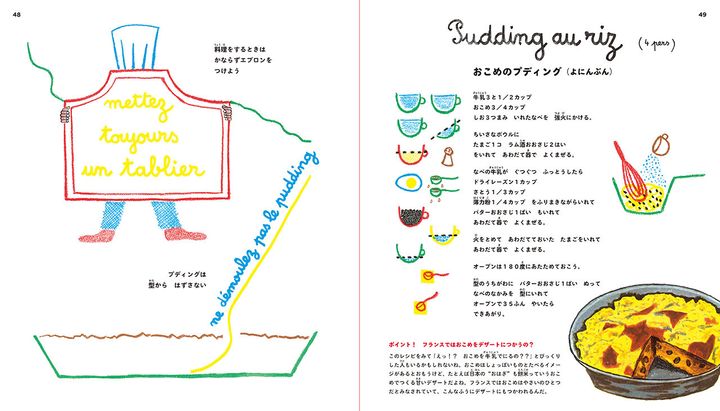 48
料理をするときは
かならずエプロンを
つけよう
mettez
toujours
un tablier
ne démoulez pas le pudding
プディングは
型から はずさない
49
Pudding au riz (4 pers)
おこめのプディング（よにんぶん）
牛乳3と1／2カップ
おこめ3／4カップ
しお3つまみ いれたなべを 強火にかける。
ちいさなボウルに
たまご1コ ラム酒おおさじ2はい
をいれて あわだて器で よくまぜる。
なべの牛乳が ぐつぐつ ふっとうしたら
ドライレーズン1カップ
さとう1／3カップ
薄力粉1／4カップ をふりまきながらいれて
バターおおさじ1ぱい もいれて
あわだて器で よくまぜる。
火をとめて あわだてておいた たまごをいれて
あわだて器で よくまぜる。
オーブンは180度にあたためておこう。
型のうちがわに バターおおさじ1ぱい ぬって
なべのなかみを 型にいれて
オーブンで35ふん やいたら
できあがり。
ポイント！ フランスではおこめをデザートにつかうの？
このレシピをみて「えっ！？ おこめを牛乳でにるの？？」とびっくり
した人もいるかもしれないね。おこめはしょっぱいものとたべるイメー
ジがあるとおもうけど、たとえば日本の“おはぎ”も餅米っていうおこ
めでつくる甘いデザートだよね。フランスではおこめはやさいのひとつ
だとみなされていて、こんなふうにデザートにもつかわれるんだ。